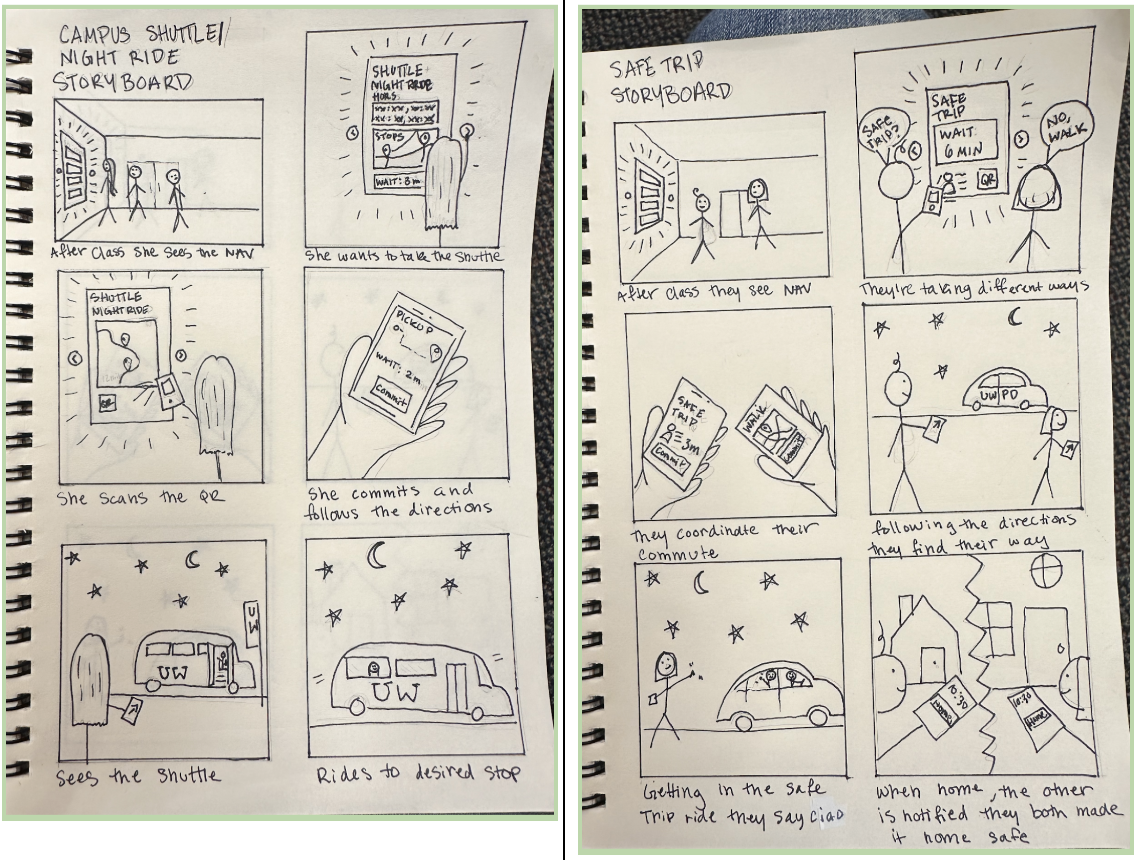 CAMPUS SHUTTLE/
NIGHT RIDE
STORYBOARD
After class she sees the NAV
SHUTTLE
NIGHT RIDE
HORS
xx:xx, xx:xx
xx:xx, xx:xx
STOPS
WAIT: 3m
She wants to take the shuttle
SHUTTLE
NIGHT RIDE
QR
She scans the QR
PICKUP
WAIT: 2m
Commit
She commits and
follows the directions
UW
UW
Sees the shuttle
UW
Rides to desired stop
SAFE TRIP
STORYBOARD
After class they see NAV
SAFE
TRIP?
SAFE
TRIP
WAIT:
6 MIN
QR
NO,
WALK
They're taking different ways
SAFE
TRIP
3m
Commit
WALK
Commit
They coordinate their
commute
UWPD
following the directions
they find their way
Getting in the safe
Trip ride they say ciao
10:30
10:30
Home
When home, the other
is notified they both made
it home safe